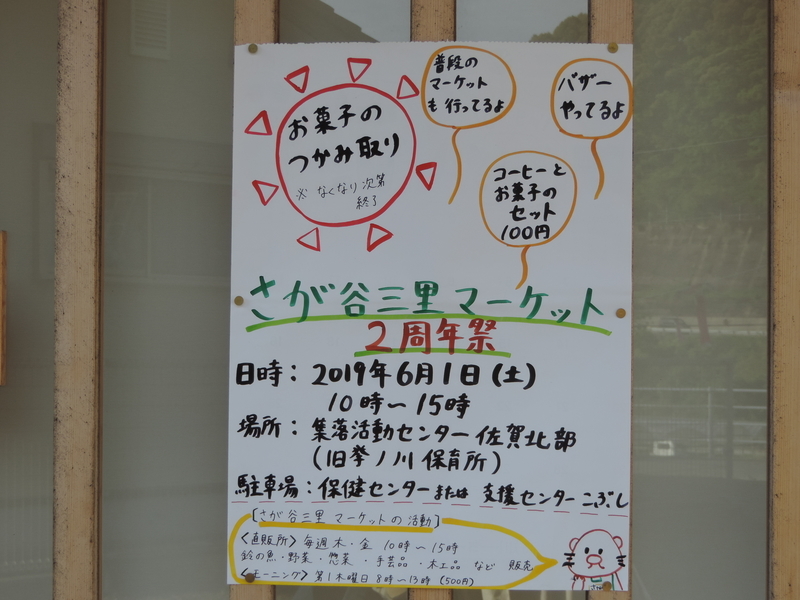 お菓子の
つかみ取り
※ なくなり次第
終了
普段の
マーケット
も行ってるよ
バザー
やってるよ
コーヒーと
お菓子の
セット
100円
さが谷三里マーケット
2周年祭
日時：2019年6月1日(土)
10時〜15時
場所：集落活動センター佐賀北部
(旧拳ノ川保育所)
駐車場：保健センターまたは支援センターこぶし
[さが谷三里マーケットの活動]
<直販所>毎週木・金 10時〜15時
鈴の魚・野菜・惣菜・手芸品・木工品など販売
<モーニング>第1木曜日8時〜13時(500円)